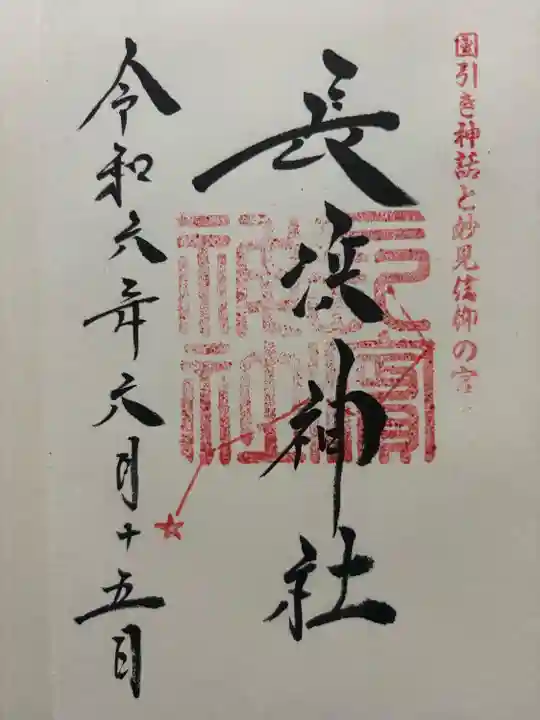 國引き神話と妙見信仰の宮
長浜神社
令和六年六月十五日